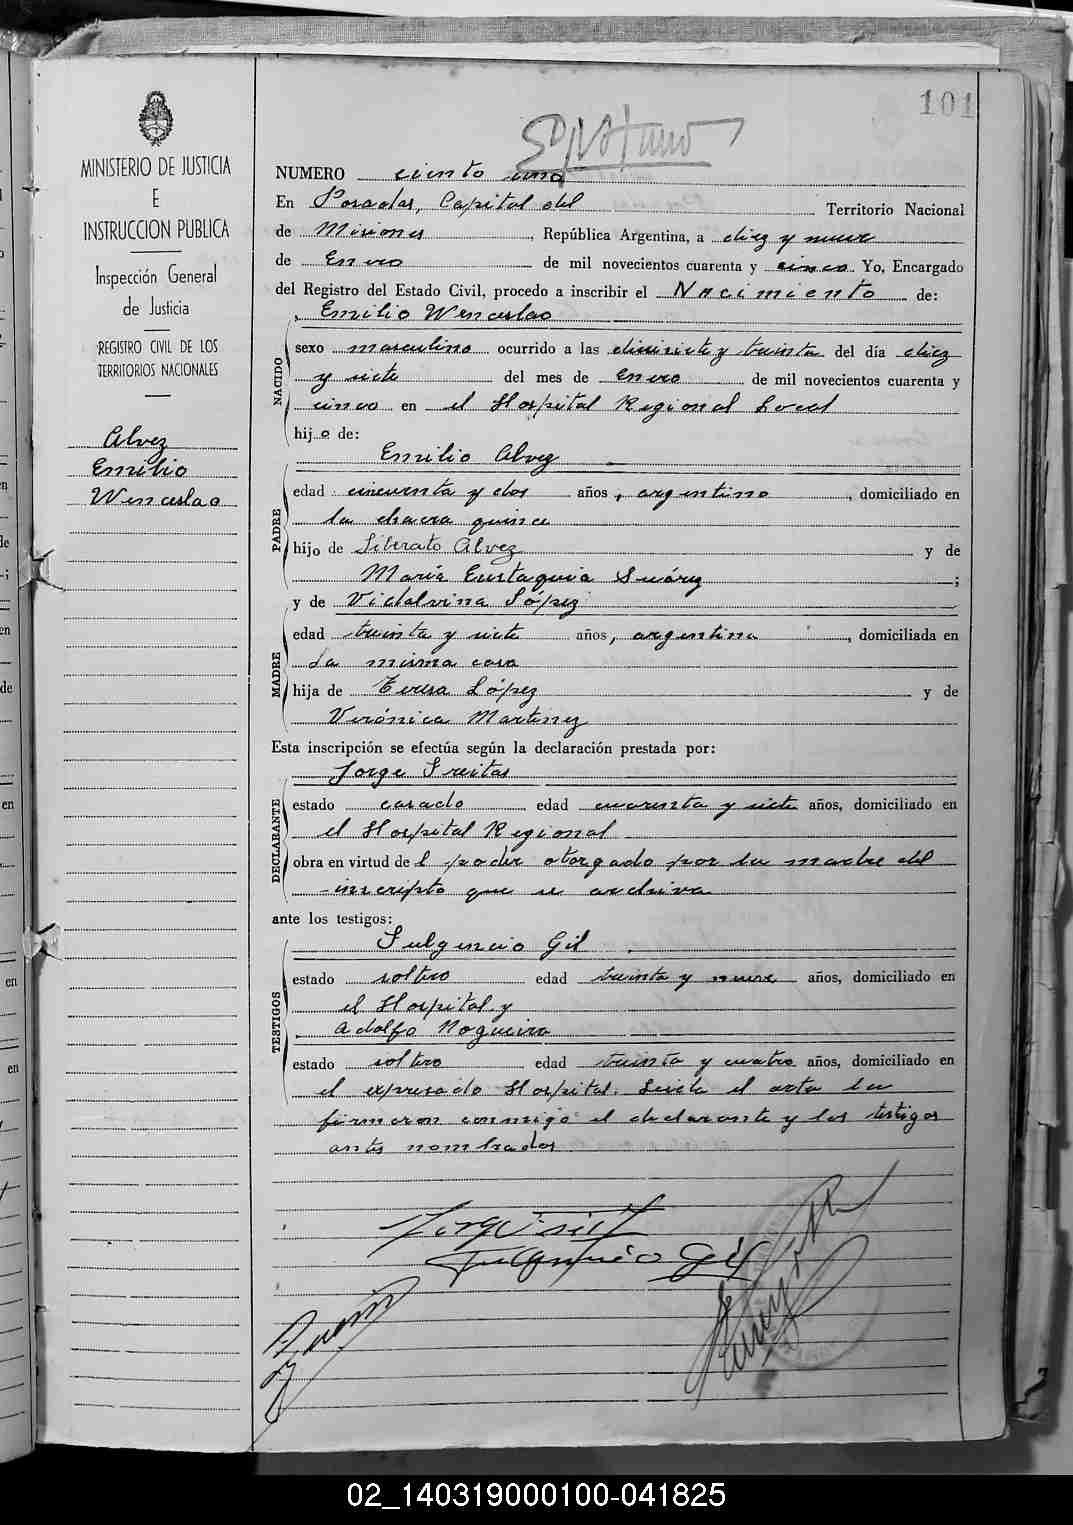 101
MINISTERIO DE JUSTICIA
E
INSTRUCCION PUBLICA
Inspección General
de Justicia
REGISTRO CIVIL DE LOS
TERRITORIOS NACIONALES
Alvez
Emilio
Wenceslao
NUMERO ciento uno
En Posadas, Capital del Territorio Nacional
de Misiones, República Argentina, a diez y nueve
de Enero de mil novecientos cuarenta y cinco Yo, Encargado
del Registro del Estado Civil, procedo a inscribir el Nacimiento de:
Emilio Wenceslao
NACIDO
sexo masculino ocurrido a las diecisiete y treinta del día diez
y siete del mes de Enero de mil novecientos cuarenta y
cinco en el Hospital Regional Local
hijo de:
Emilio Alvez
PADRE
edad cincuenta y dos años, argentino, domiciliado en
la chacra quince
hijo de Liberato Alvez y de
María Eustaquia Suárez;
y de Vidalvina López
MADRE
edad treinta y siete años, argentina, domiciliada en
la misma casa
hija de Teresa López y de
Verónica Martinez
Esta inscripción se efectúa según la declaración prestada por:
Jorge Freitas
DECLARANTE
estado casado edad cuarenta y siete años, domiciliado en
el Hospital Regional
obra en virtud del poder otorgado por la madre del
inscripto que se archiva
ante los testigos:
Fulgencio Gil
TESTIGOS
estado soltero edad treinta y nueve años, domiciliado en
el Hospital y
Adolfo Nogueira
estado soltero edad treinta y cuatro años, domiciliado en
el expresado Hospital. Leida el acta la
firmaron conmigo el declarante y los testigos
antes nombrados
Fulgencio Gil
02_140319000100-041825